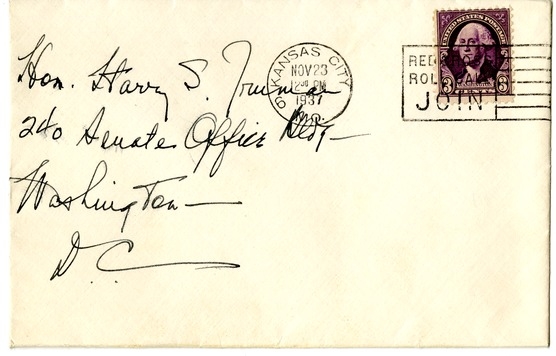 Hon. Harry S. Truman
240 Senate Office Bldg—
Washington—
D.C.
KANSAS CITY
NOV 23
1937
MO.
UNITED STATES POSTAGE
3 3
RED
ROL CAL
JOIN